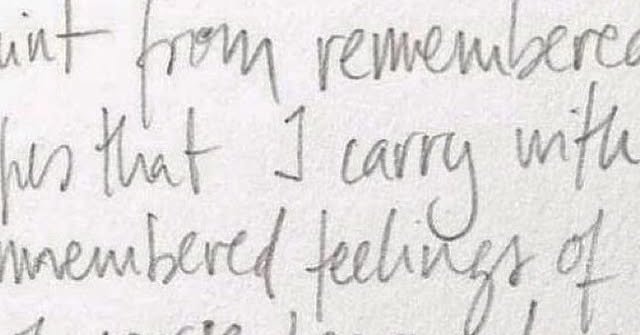 aint from remembered
pes that I carry with
emembered feelings of